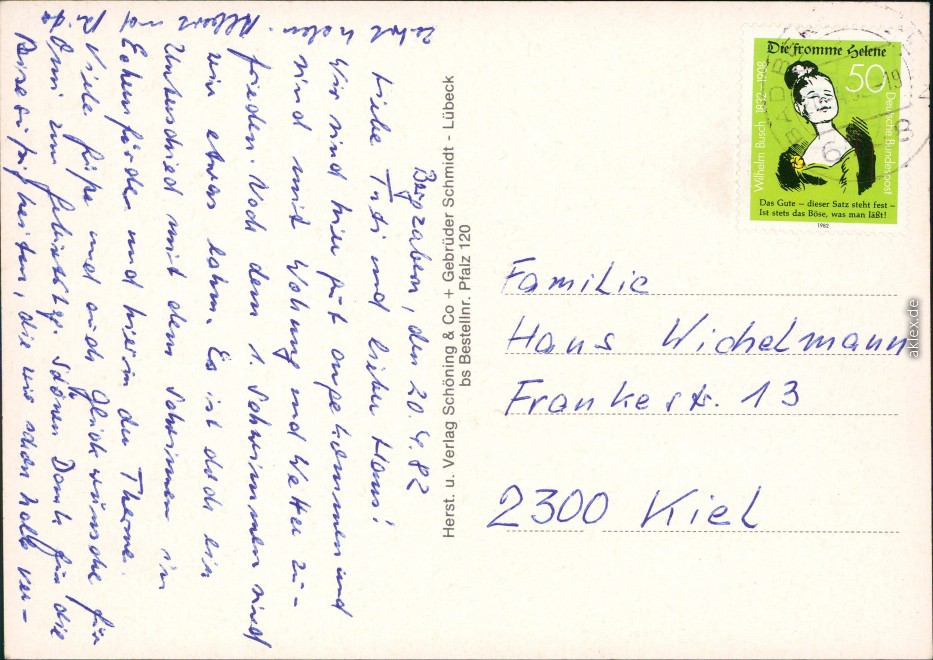 Bergzabern, den 20.4.82
Liebe Tuti und lieber Hans!
Wir sind hier gut angekommen und
sind mit Wohnung und Wetter zu-
frieden. Nach dem 1. Schwimmen sind
wir etwas lahm. Es ist doch ein
Unterschied mit dem Schwimmen in
Eckernförde und hier in der Therme.
Viele Grüße und auch Glückwünsche für
Omi zum Geburtstg. Schönen Dank für die
die wir schon halb ver-
zehrt haben.
und
Herst. u. Verlag Schöning & Co + Gebrüder Schmidt - Lübeck
bs Bestellnr. Pfalz 120
Die fromme Helene
50
Wilhelm Busch 1832-1908
Deutsche Bundespost
Das Gute – dieser Satz steht fest –
Ist stets das Böse, was man läßt!
1982
Familie
Hans Wichelmann
Frankestr. 13
2300 Kiel
aklex.de